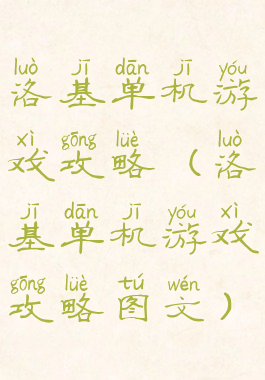 luò jī dān jī yóu
洛基单机游
xì gōng lüè luò
戏攻略（洛
jī dān jī yóu xì
基单机游戏
gōng lüè tú wén
攻略图文）